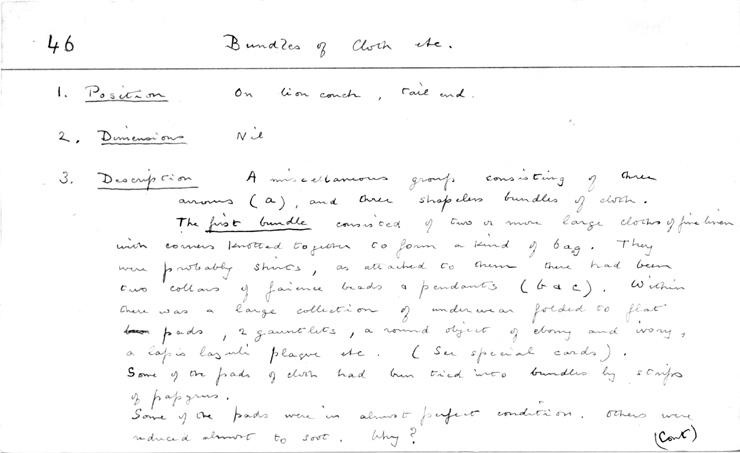 46 Bundles of Cloth etc.
1. Position On lion couch, tail end.
2. Dimensions Nil
3. Description A miscellaneous group consisting of three
arrows (a), and three shapeless bundles of cloth.
The first bundle consisted of two or more large cloths of fine linen
with corners knotted together to form a kind of bag. They
were probably shirts, as attached to them there had been
two collars of faience beads & pendants (b & c). Within
there was a large collection of underwear folded to flat
pads, 2 gauntlets, a round object of ebony and ivory,
a lapis lazuli plaque etc. (See special cards).
Some of the pads of cloth had been tied into bundles by strips
of papyrus.
Some of the pads were in almost perfect condition. Others were
reduced almost to soot. Why?
(Cont)